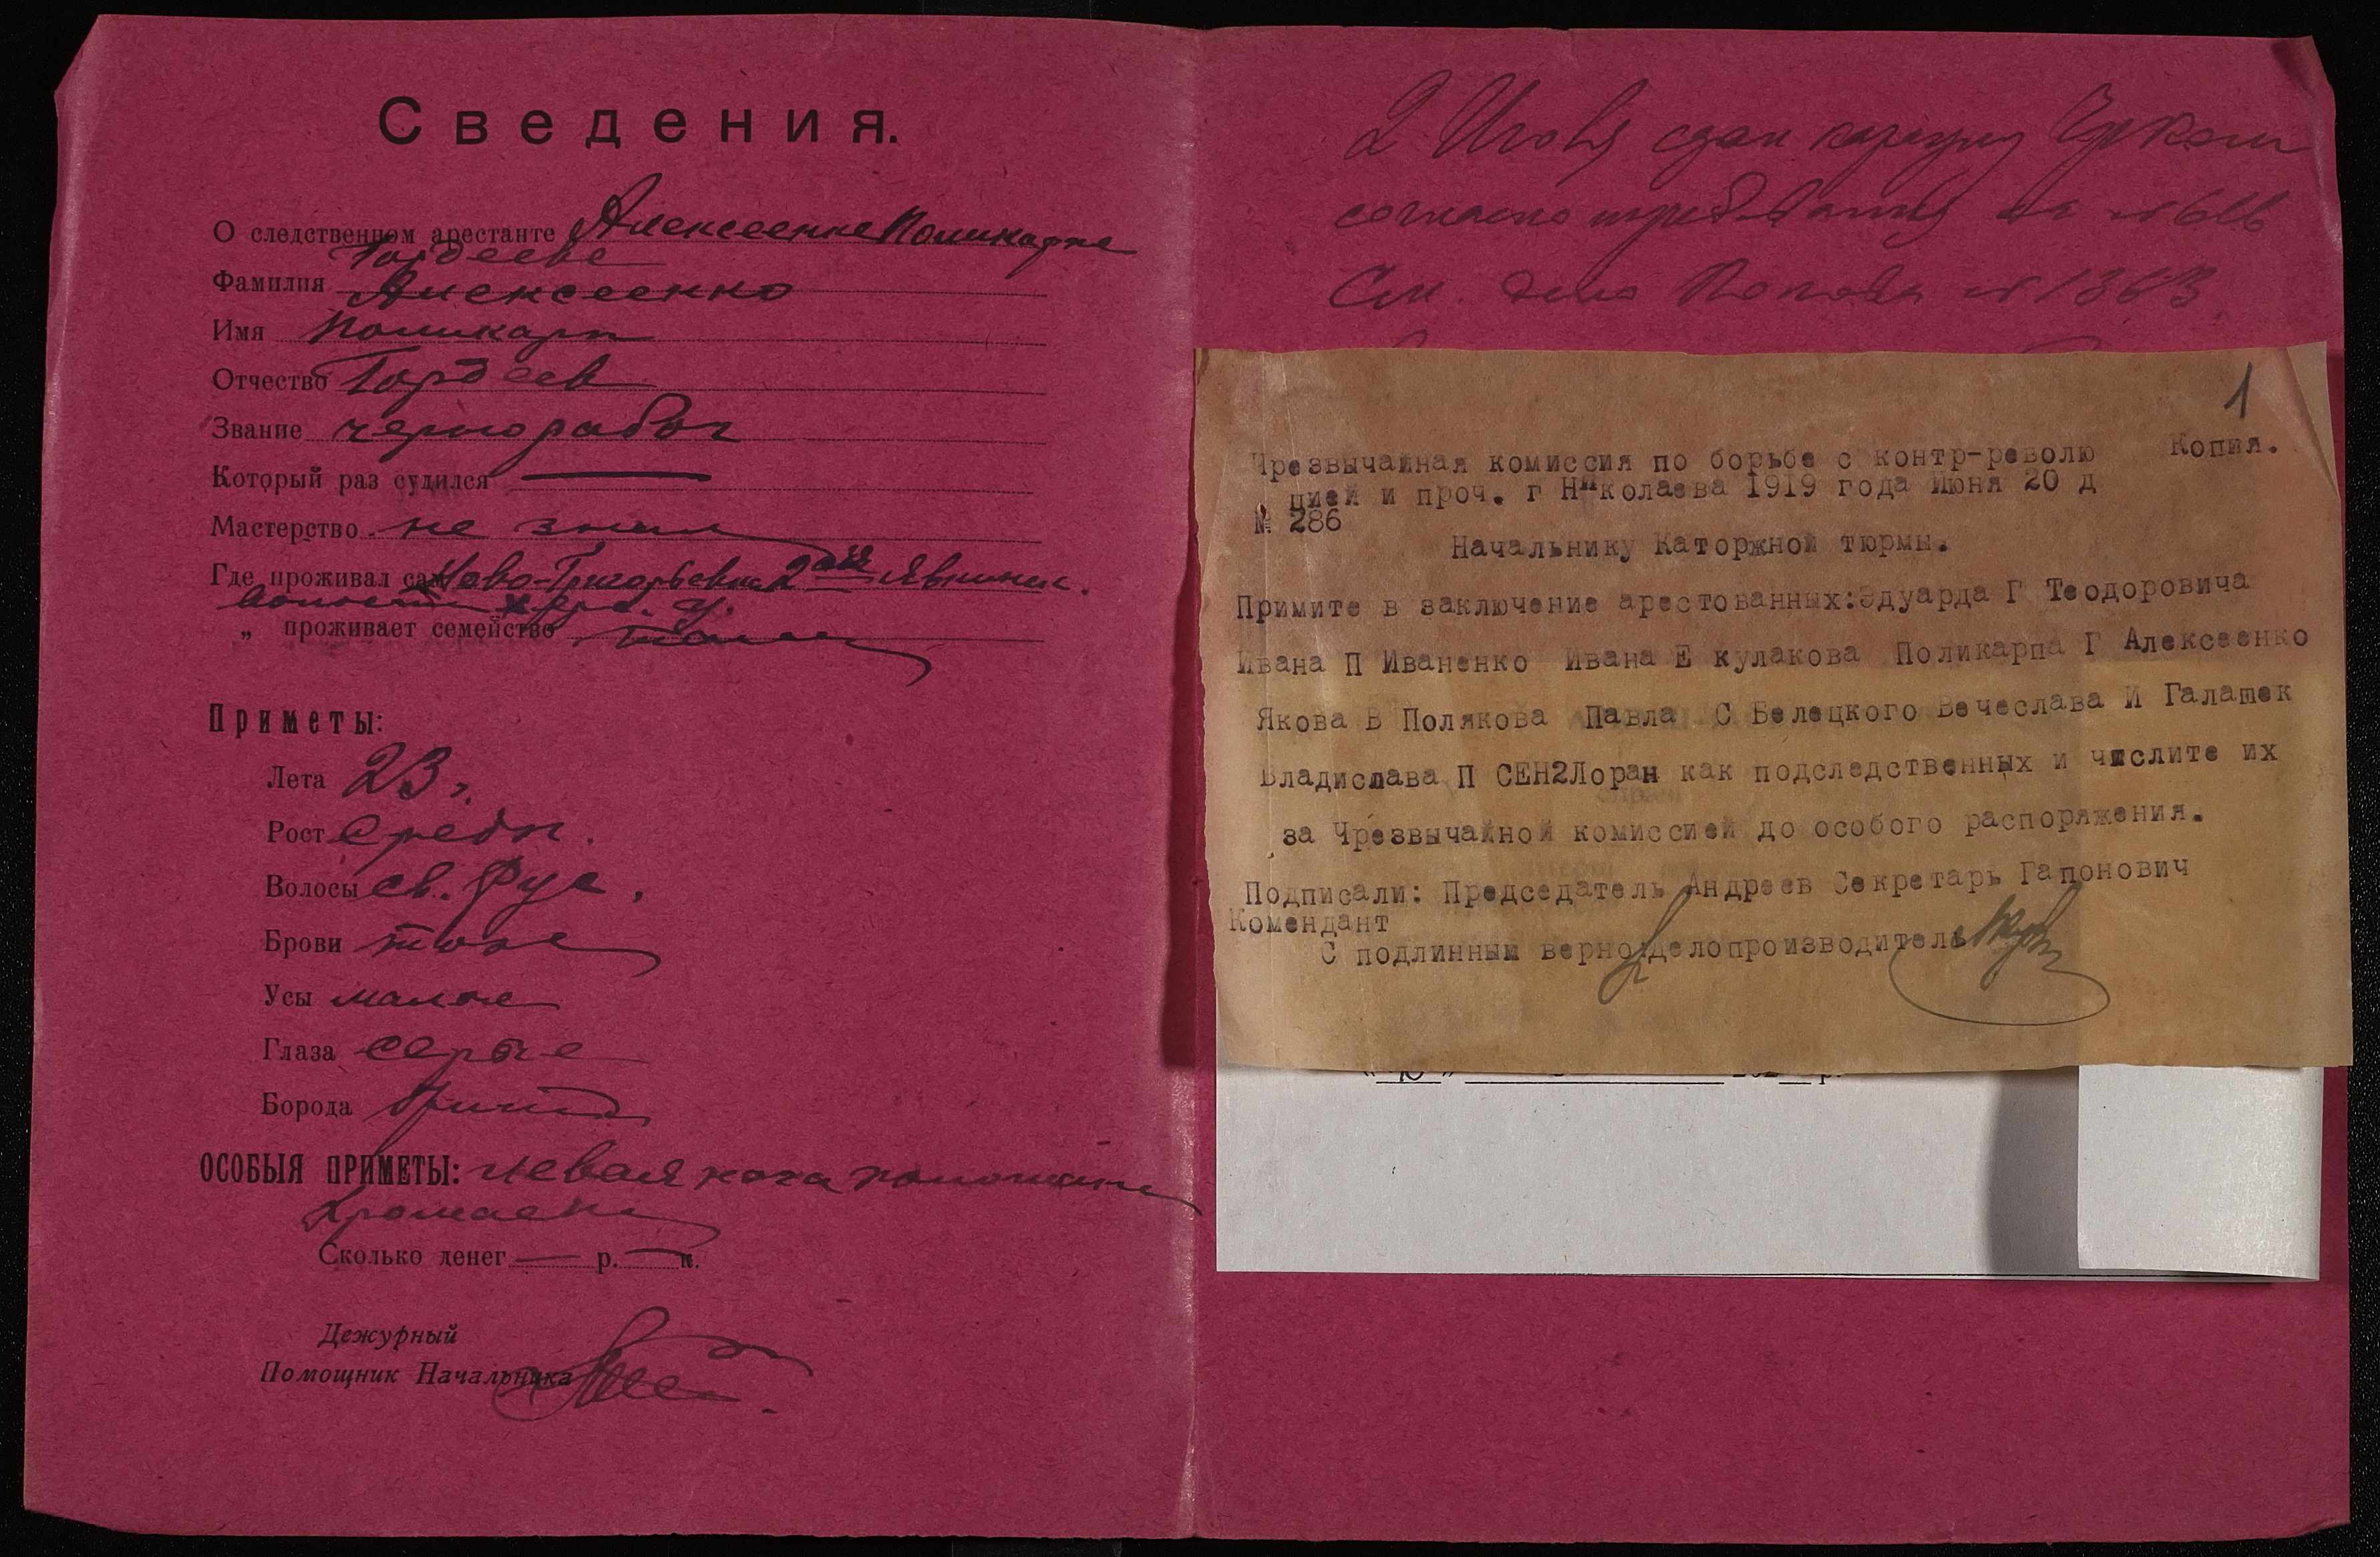 Сведения.
О следственном арестанте Алексеенке Поликарпе
Гордееве
Фамилия Алексеенко
Имя Поликарп
Отчество Гордеев
Звание чернорабоч
Который раз судился
Мастерство не знал
Где проживал сам Ново-Григорьевка 2ая
волости Херс. г.
„ проживает семейство там
Приметы:
Лета 23
Рост средн.
Волосы св. Рус.
Брови тоже
Усы малые
Глаза серые
Борода
ОСОБЫЯ ПРИМЕТЫ: левая нога
Хромает
Сколько денег р. к.
Дежурный
Помощник Начальника
2 Июля сдан караулу
согласно требования за №
См. дело № 1363
1
Копия.
Чрезвычайная комиссия по борьбе с контр-револю
цией и проч. г Николаева 1919 года Июня 20 д
№ 286
Начальнику Каторжной тюрмы.
Примите в заключение арестованных:Эдуарда Г Теодоровича
Ивана П Иваненко Ивана Е кулакова Поликарпа Г Алексеенко
Якова В Полякова Павла С Белецкого Вечеслава И Галашек
Владислава П СЕН2Лоран как подследственных и числите их
за Чрезвычайной комиссией до особого распоряжения.
Подписали: Председатель Андреев Секретарь Гапонович
Комендант
С подлинным верно:делопроизводитель